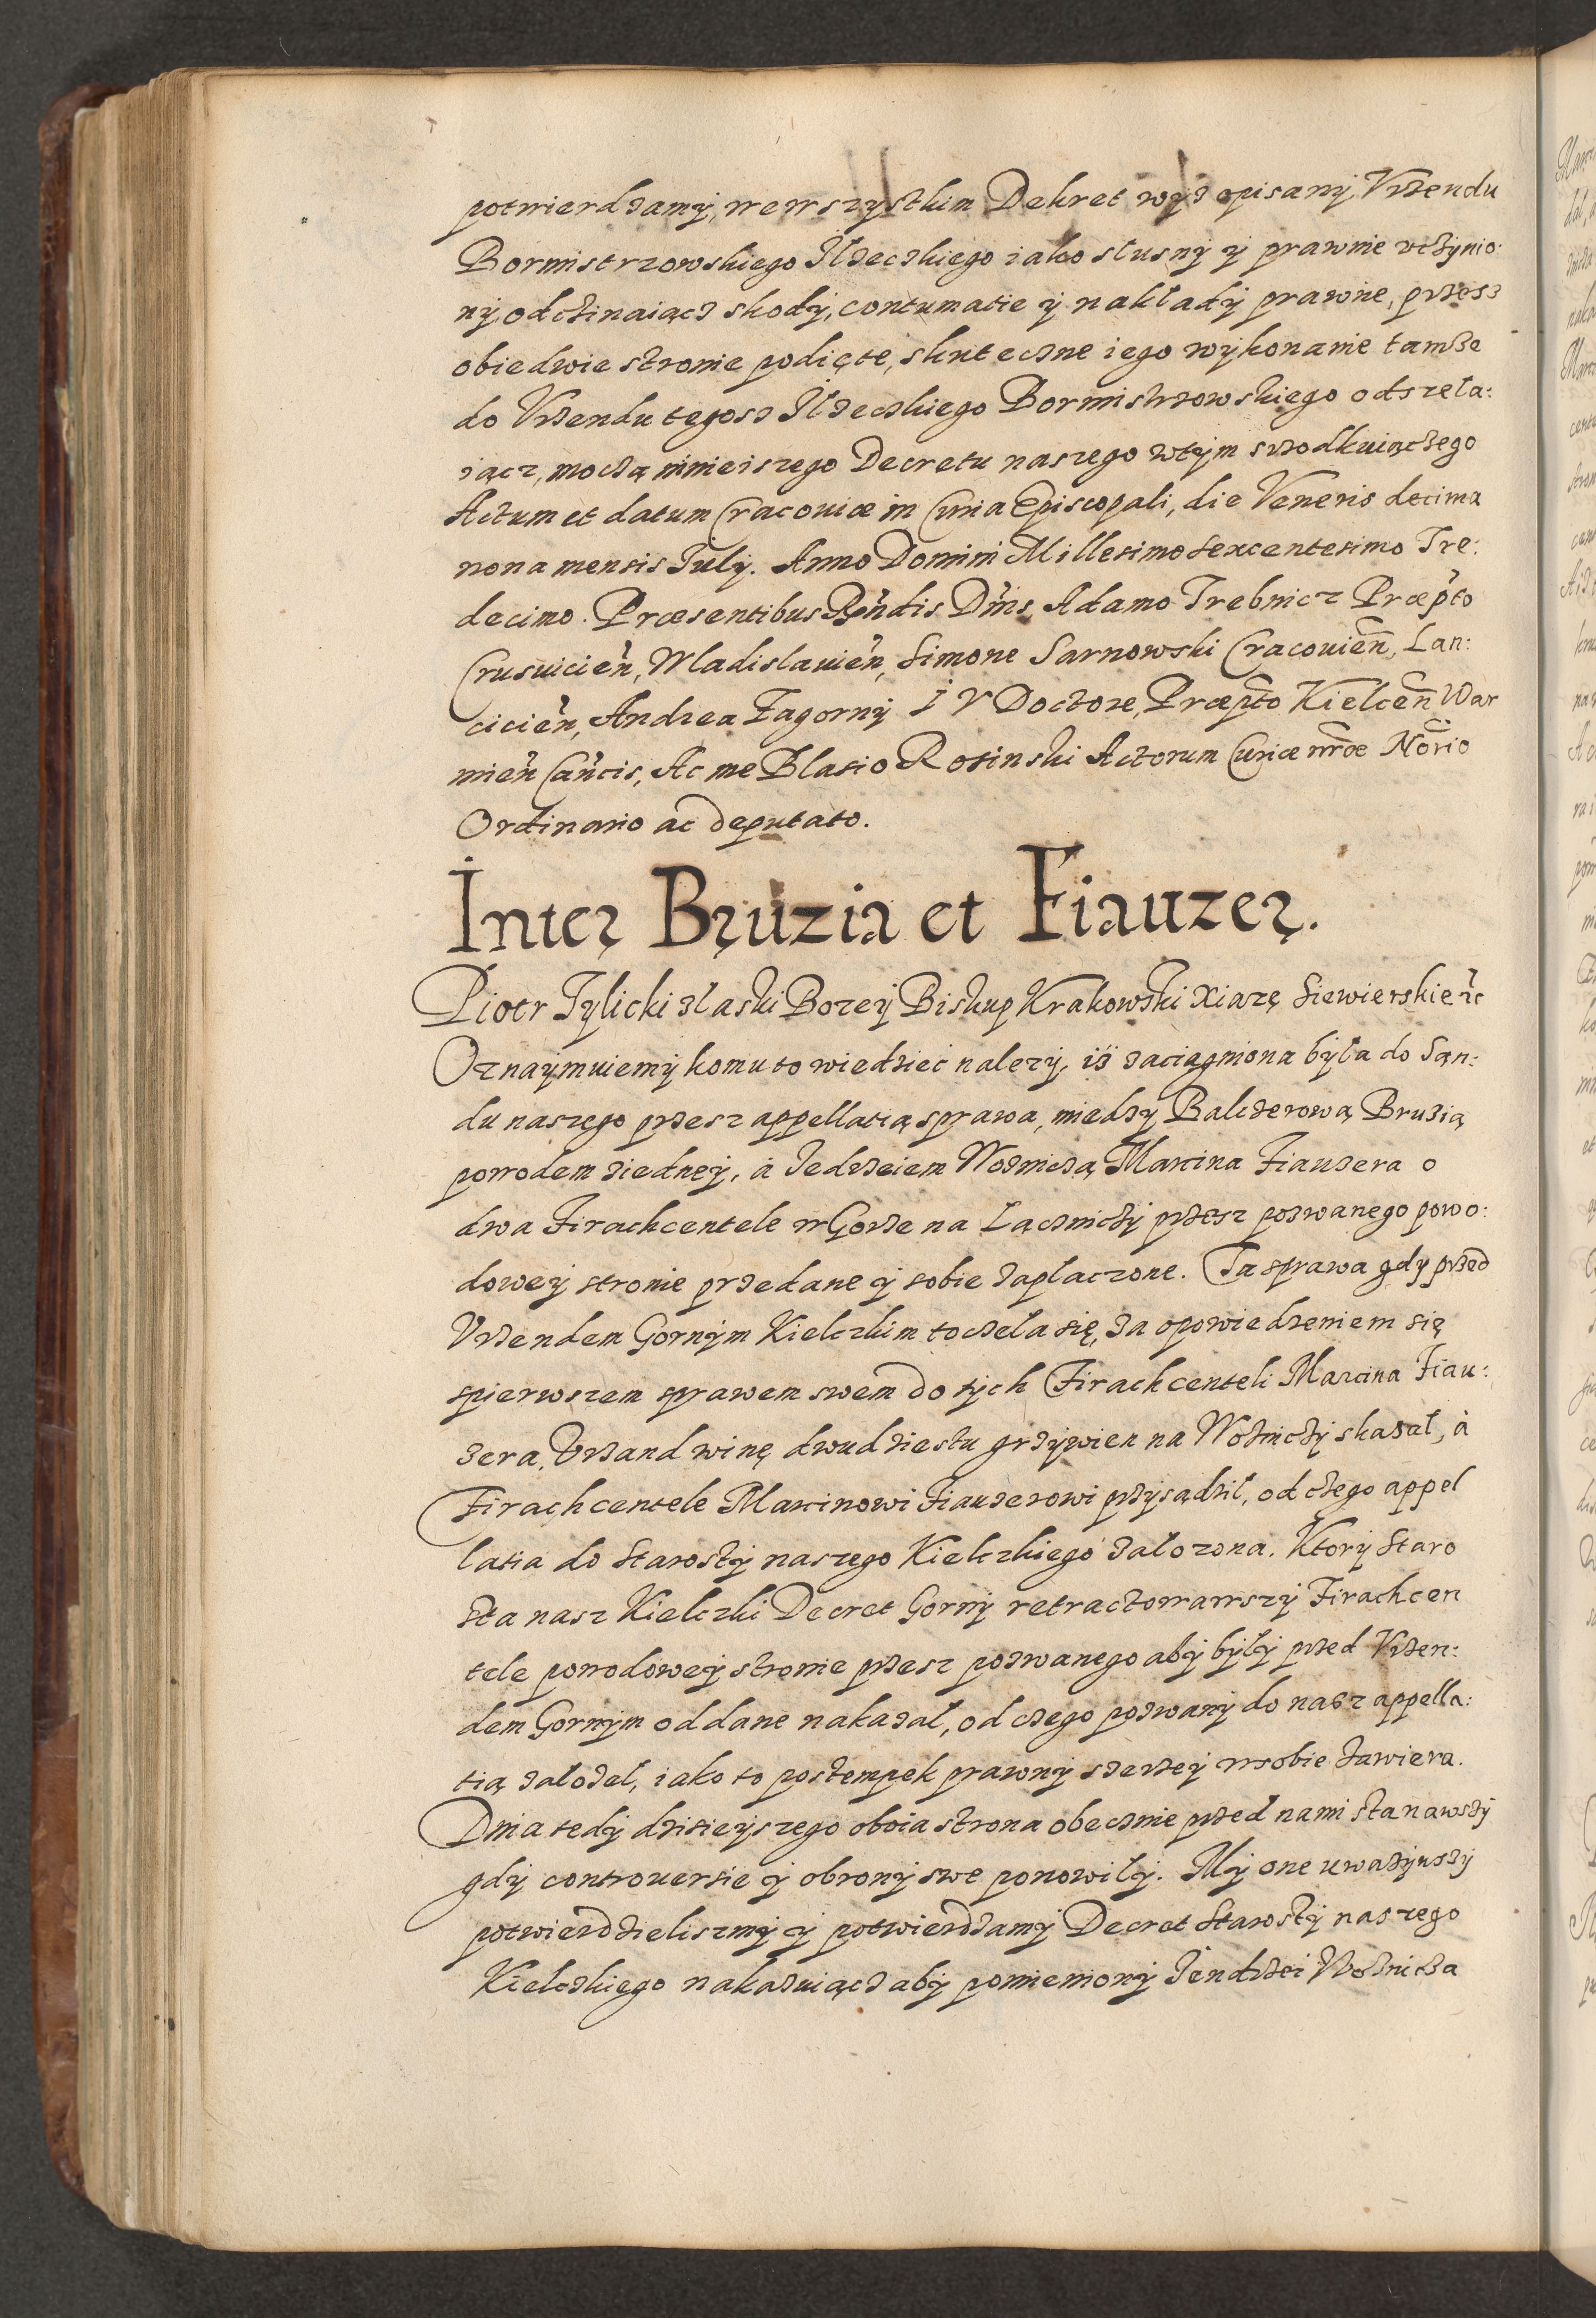 potwierdzamÿ, wewszystkim Dekret wÿż opisanÿ Vrzendu
Bormistrzowskiego Jłzeczkiego iako słusnÿ ÿ prawnie vczÿnio:
nÿ, odczinaiącz skodÿ, contumatie ÿ nakładÿ prawne, przesz
obiedwie stronie podięte, skuteczne iego wÿkonanie tamże
do Vrzendu tegosz Jłzeczkiego Bormistrzowskiego odszeła:
iącz, moczą ninieiszego Decretu naszego wtÿm srzodkuiączego
Actum et datum Cracouiæ in Curia Episcopali, die Veneris decima
nona mensis Julÿ. Anno Domini Millesimo Sexcentesimo Tre:
decimo. Præsentibus Rñdis Dñis Adamo Trebnicz Præpto
Crusuicieñ, Wladislauieñ, Simone Sarnowski Cracouieñ, Lan:
cicieñ, Andrea Zagornÿ I V Doctore, Præpto Kielceñ War
mieñ Cañcis, Ac me Blasio Rosinski Actorum Curiæ nræ Norio
Ordinario ac deputato.
Inter Bruzia et Fiauzer.
Piotr Tylicki złaski Bozeÿ Biskup Krakowski Xiazę Siewierskie etc
Oznaÿmuiemÿ komu to wiedzieć nalezÿ, iż zaciągniona bÿła do Sąn:
du naszego przesz appellatią sprawa, miedzy Balczerową Bruzią
powodem ziedneÿ, à Jedrzeiem Woznicżą Marcina Fiauzera o
dwa Firachcentele w Gorze na Łącznicżÿ przesz pozwanego powo:
doweÿ stronie przedane ÿ sobie zapłaczone. Ta sprawa gdy przed
Vrzendem Gornÿm Kielczkim toczeła się, za opowiedzeniem się
spierwszem sprawem swem do tÿch Firachcenteli Marcina Fiau:
zera, Vrzand winę dwudziestu grzÿwien na Woznicżÿ skazał, à
Firachcentele Marcinowi Fiauzerowi przÿsądził, od czego appel
latia do Starostÿ naszego Kielczkiego załozona. Ktorÿ Staro
sta nasz Kielczki Decret Gornÿ retractowawszÿ Firachcen
tele powodoweÿ stronie przesz pozwanego abÿ bÿłÿ przed Vrzen:
dem Gornÿm oddane nakazał, od czego pozwanÿ do nasz appella:
tią założeł, iako to postempek prawnÿ szerzeÿ wsobie zawiera.
Dnia tedÿ dzisieÿszego oboia strona obecznie przed nami stanawszÿ
gdÿ controuersie ÿ obronÿ swe ponowiłÿ. Mÿ one uwazÿwszÿ
potwierdzieliszmÿ ÿ potwierdzamÿ Decret Starostÿ naszego
Kielczkiego nakazuiącz abÿ pomienionÿ Jendrzei Woznicza